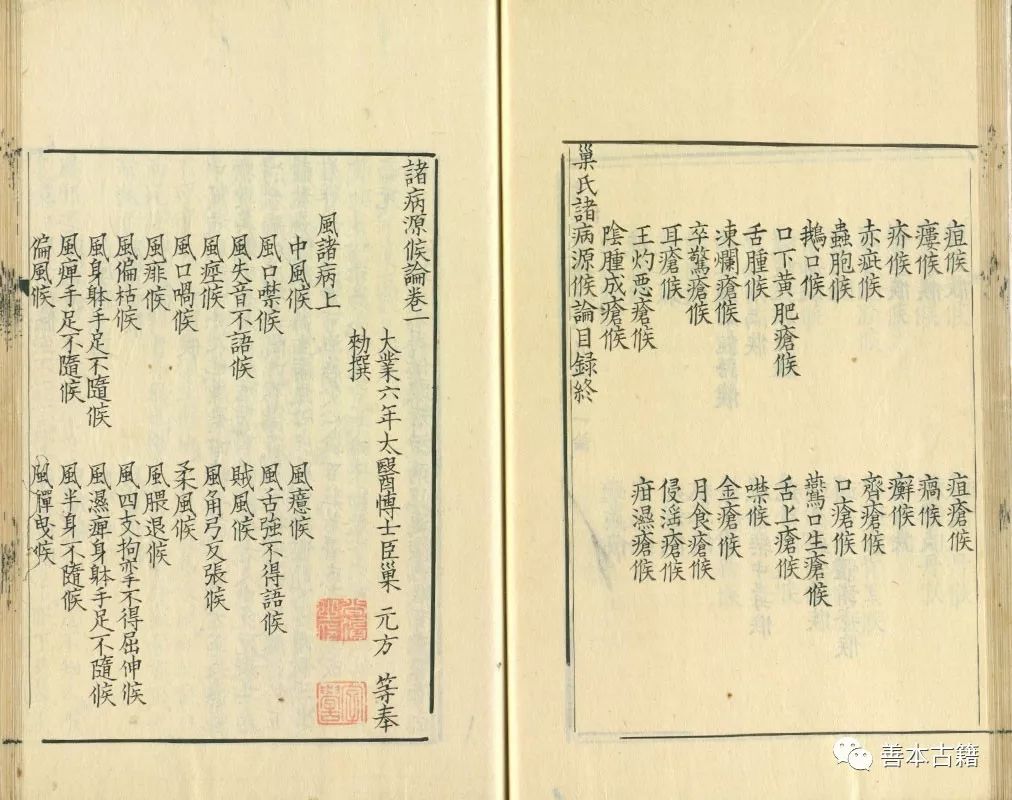 疽候　疽瘡候
瘻候　瘑候
疥候　癬候
赤疵候　齊瘡候
蟲胞候　口瘡候
鵝口候　鷰口生瘡候
口下黄肥瘡候　舌上瘡候
舌腫候　噤候
凍爛瘡候　金瘡候
卒驚瘡候　月食瘡候
耳瘡候　侵淫瘡候
王灼惡瘡候　疳濕瘡候
陰腫成瘡候
巢氏諸病源候論目録終
諸病源候論卷一
大業六年太醫博士臣巢　元方　等奉
勑撰
風諸病上
中風候　風癔候
風口噤候　風舌強不得語候
風失音不語候　賊風候
風痙候　風角弓反張候
風口喎候　柔風候
風痱候　風腲退候
風偏枯候　風四支拘攣不得屈伸候
風身躰手足不隨候　風濕痺身躰手足不隨候
風痺手足不隨候　風半身不隨候
偏風候　風軃曳候
善本古籍